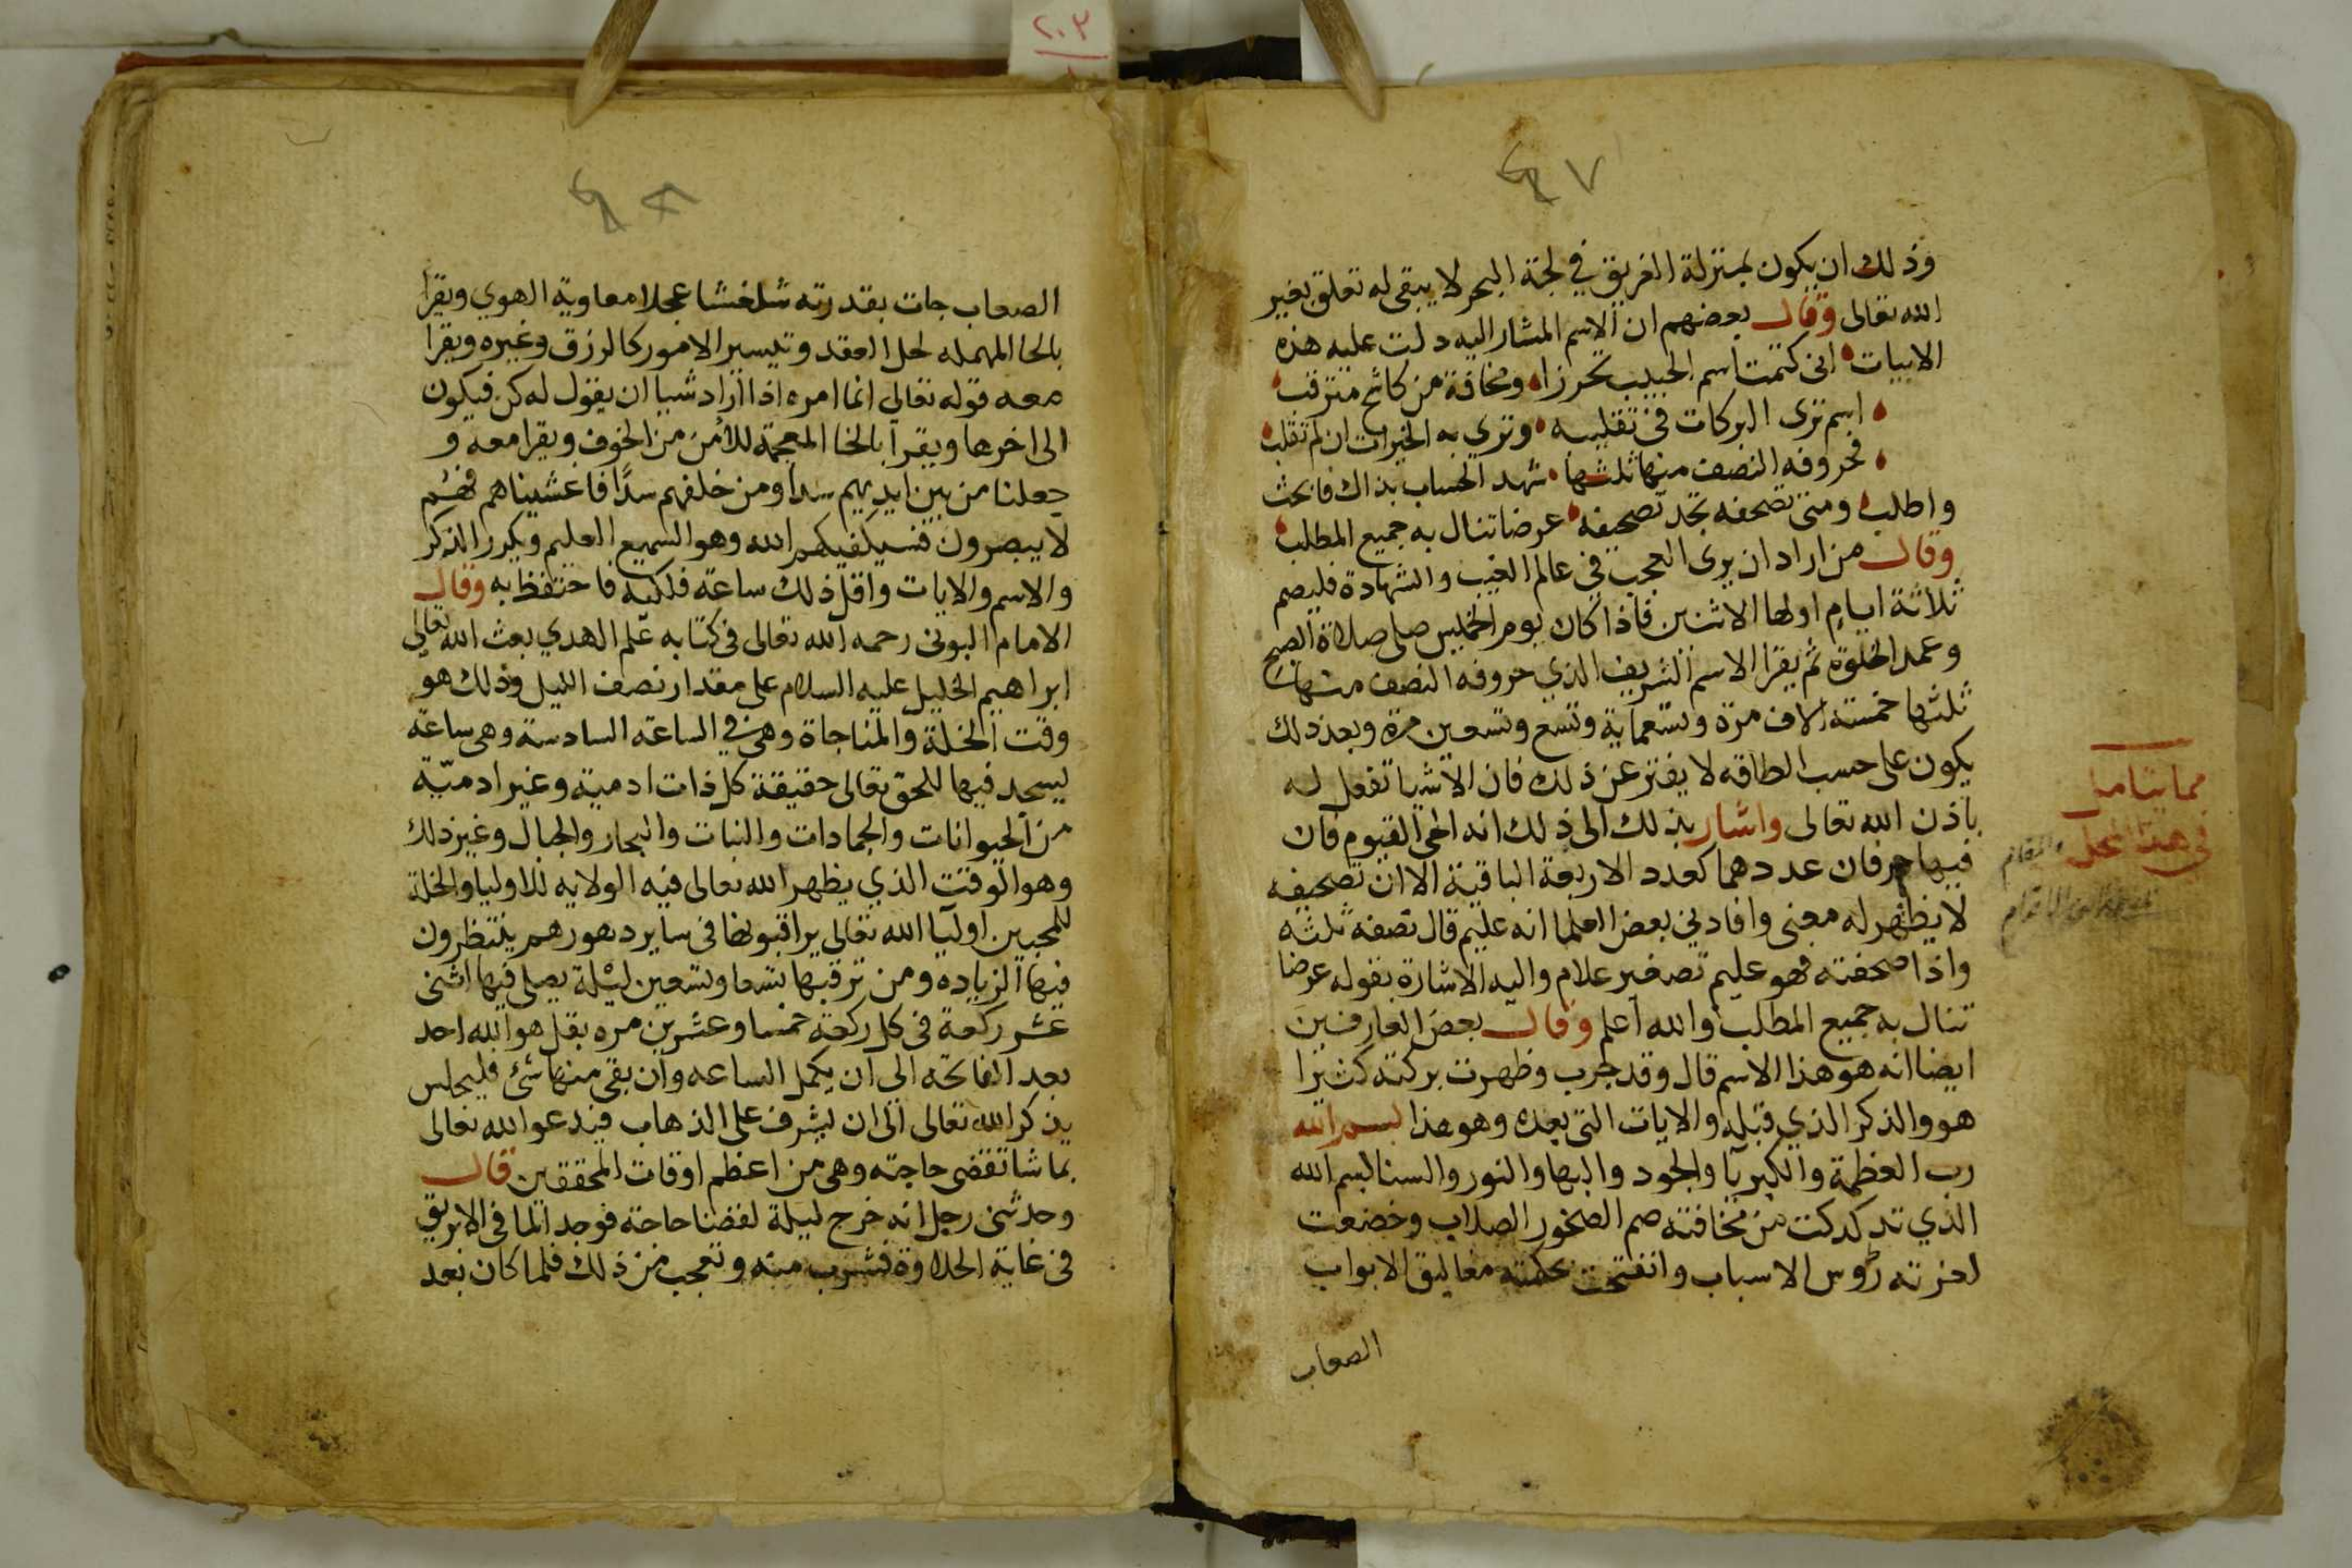 ٢٠٣
٤٧
وذلك ان يكون بمنزلة الغريق في لجة البحر لا يبقى له تعلق بغير
الله تعالى وقال بعضهم ان الاسم المشار اليه دلت عليه هذه
الابيات انى كتمت اسم الحبيب تحرزا ومخافة من كاشح مترقب
اسم ترى البركات فى تقليبه وترى به الخيرات ان لم تقلب
فحروفه النصف منها ثلثها شهد الحساب بذاك فابحث
واطلب ومتى تصحفه تجد تصحيفه عرضا تنال به جميع المطلب
وقال من اراد ان يرى العجب في عالم الغيب والشهادة فليصم
ثلاثة ايام اولها الاثنين فاذا كان يوم الخميس صلى صلاة الصبح
وعمد الخلوة ثم يقرا الاسم الشريف الذي حروفه النصف منها
ثلثها خمسة الاف مرة وتسعماية وتسع وتسعين مرة وبعد ذلك
يكون على حسب الطاقه لا يفتر عن ذلك فان الاشيا تفعل له
باذن الله تعالى واشار بذلك الى ذلك انه الحى القيوم فان
فيها حرفان عددهما كعدد الاربعة الباقية الا ان تصحيفه
لا يظهر له معنى وافادني بعض العلما انه عليم قال نصفه ثلثه
واذا صحفته فهو عليم تصغير علام واليه الاشارة بقوله عرضا
تنال به جميع المطلب والله اعلم وقال بعض العارفين
ايضا انه هو هذا الاسم قال وقد جرب وظهرت بركته كثيرا
هو والذكر الذي قبله والايات التى بعده وهو هذا بسم الله
رب العظمة والكبريا والجود والبها والنور والسنا بسم الله
الذي تدكدكت من مخافته صم الصخور الصلاب وخضعت
لعزته رؤس الاسباب وانفتحت بحكمته مغاليق الابواب
الصعاب
مما يتامل
في هذا المحل
٤٨
الصعاب جات بقدرته شلغشا عجلا معاوية الهوي ويقرا
بالحا المهمله لحل العقد وتيسير الامور كالرزق وغيره ويقرا
معه قوله تعالى انما امره اذا اراد شيا ان يقول له كن فيكون
الى اخرها ويقرا بالخا المعجمة للامن من الخوف ويقرا معه و
جعلنا من بين ايديهم سدا ومن خلفهم سدًا فاغشيناهم فهم
لا يبصرون فسيكفيكهم الله وهو السميع العليم ويكرر الذكر
والاسم والايات واقل ذلك ساعة فلكيه فاحتفظ به وقال
الامام البونى رحمه الله تعالى في كتابه علم الهدي بعث الله تعالى
ابراهيم الخليل عليه السلام على مقدار نصف الليل وذلك هو
وقت الخلة والمناجاة وهى في الساعة السادسة وهى ساعة
يسجد فيها للحق تعالى حقيقة كل ذات ادمية وغير ادميّة
من الحيوانات والجمادات والنبات والبحار والجبال وغير ذلك
وهو الوقت الذي يظهر الله تعالى فيه الولايه للاوليا والخلة
للمحبين اوليا الله تعالى يراقبونها في ساير دهورهم ينتظرون
فيها الزياده ومن ترقبها تسعا وتسعين ليلة يصلى فيها اثنى
عشر ركعة في كل ركعة خمسا وعشرين مره بقل هو الله احد
بعد الفاتحه الى ان يكمل الساعه وان بقى منها شئ فليجلس
يذكر الله تعالى الى ان يشرف على الذهاب فيدعو الله تعالى
بما شا تقضى حاجته وهى من اعظم اوقات المحققين قال
وحدثنى رجل انه خرج ليلة لقضا حاجته فوجد الما في الابريق
فى غاية الحلاوة فشرب منه وتعجب من ذلك فلما كان بعد